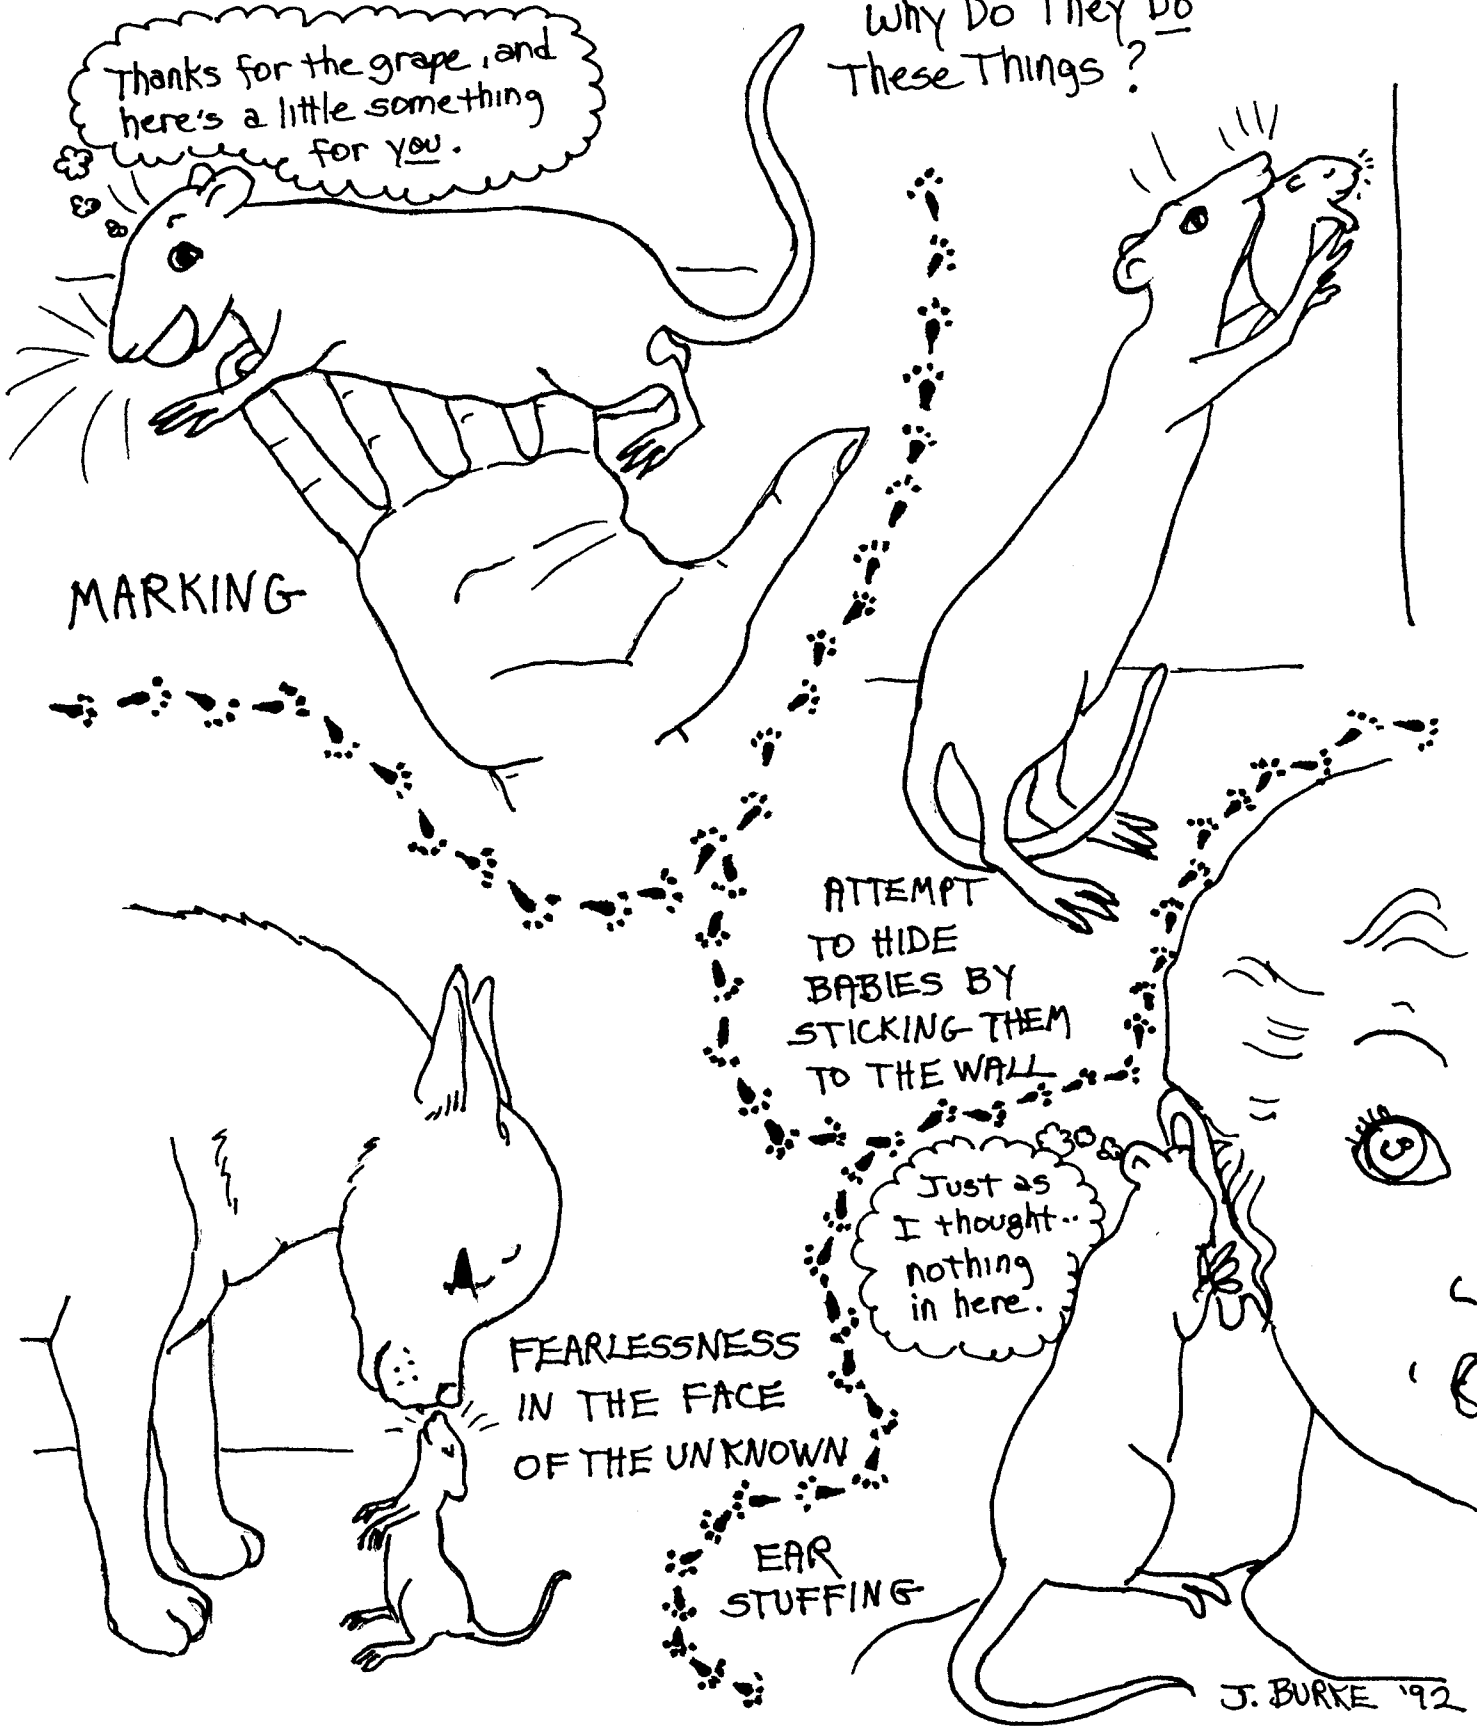 Why Do They Do
These Things?
Thanks for the grape, and
here's a little something
for you.
MARKING
ATTEMPT
TO HIDE
BABIES BY
STICKING THEM
TO THE WALL
Just as
I thought..
nothing
in here.
FEARLESSNESS
IN THE FACE
OF THE UNKNOWN
EAR
STUFFING
J. BURKE '92